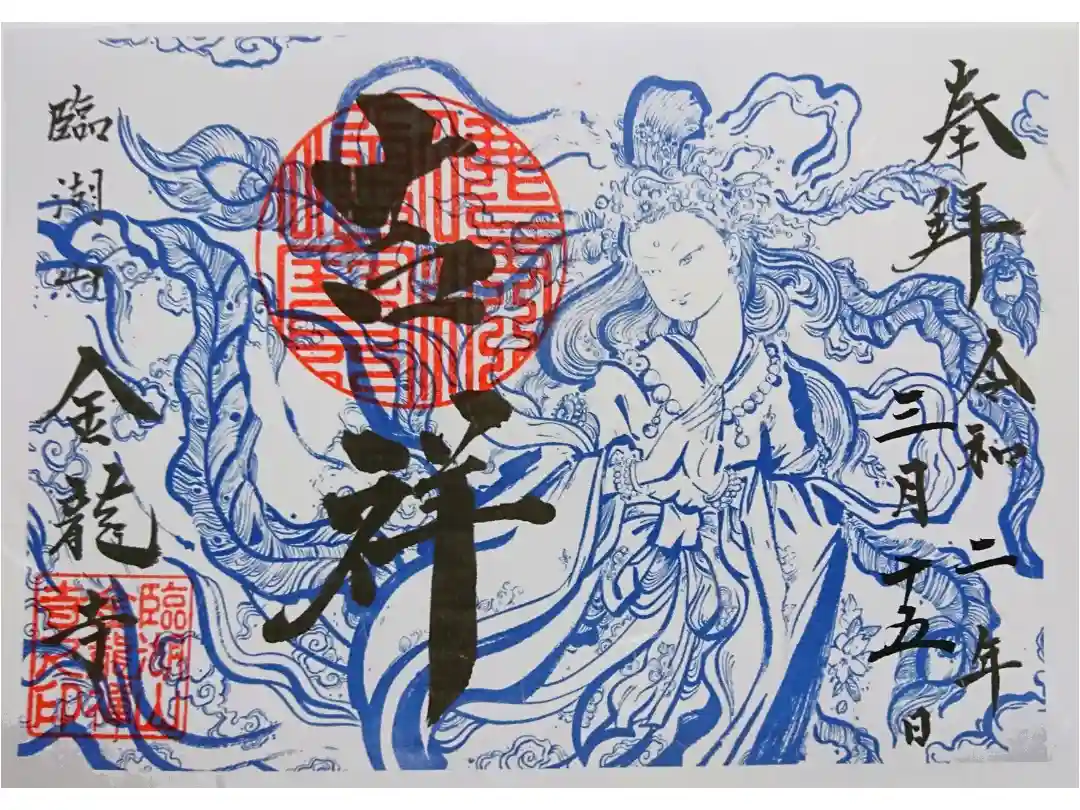 奉拝 令和二年
三月十五日
吉祥
臨湖山
金龍寺
臨湖山